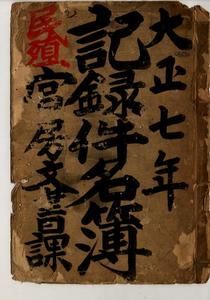 大正七年
記録件名簿
民殖
官房文書課